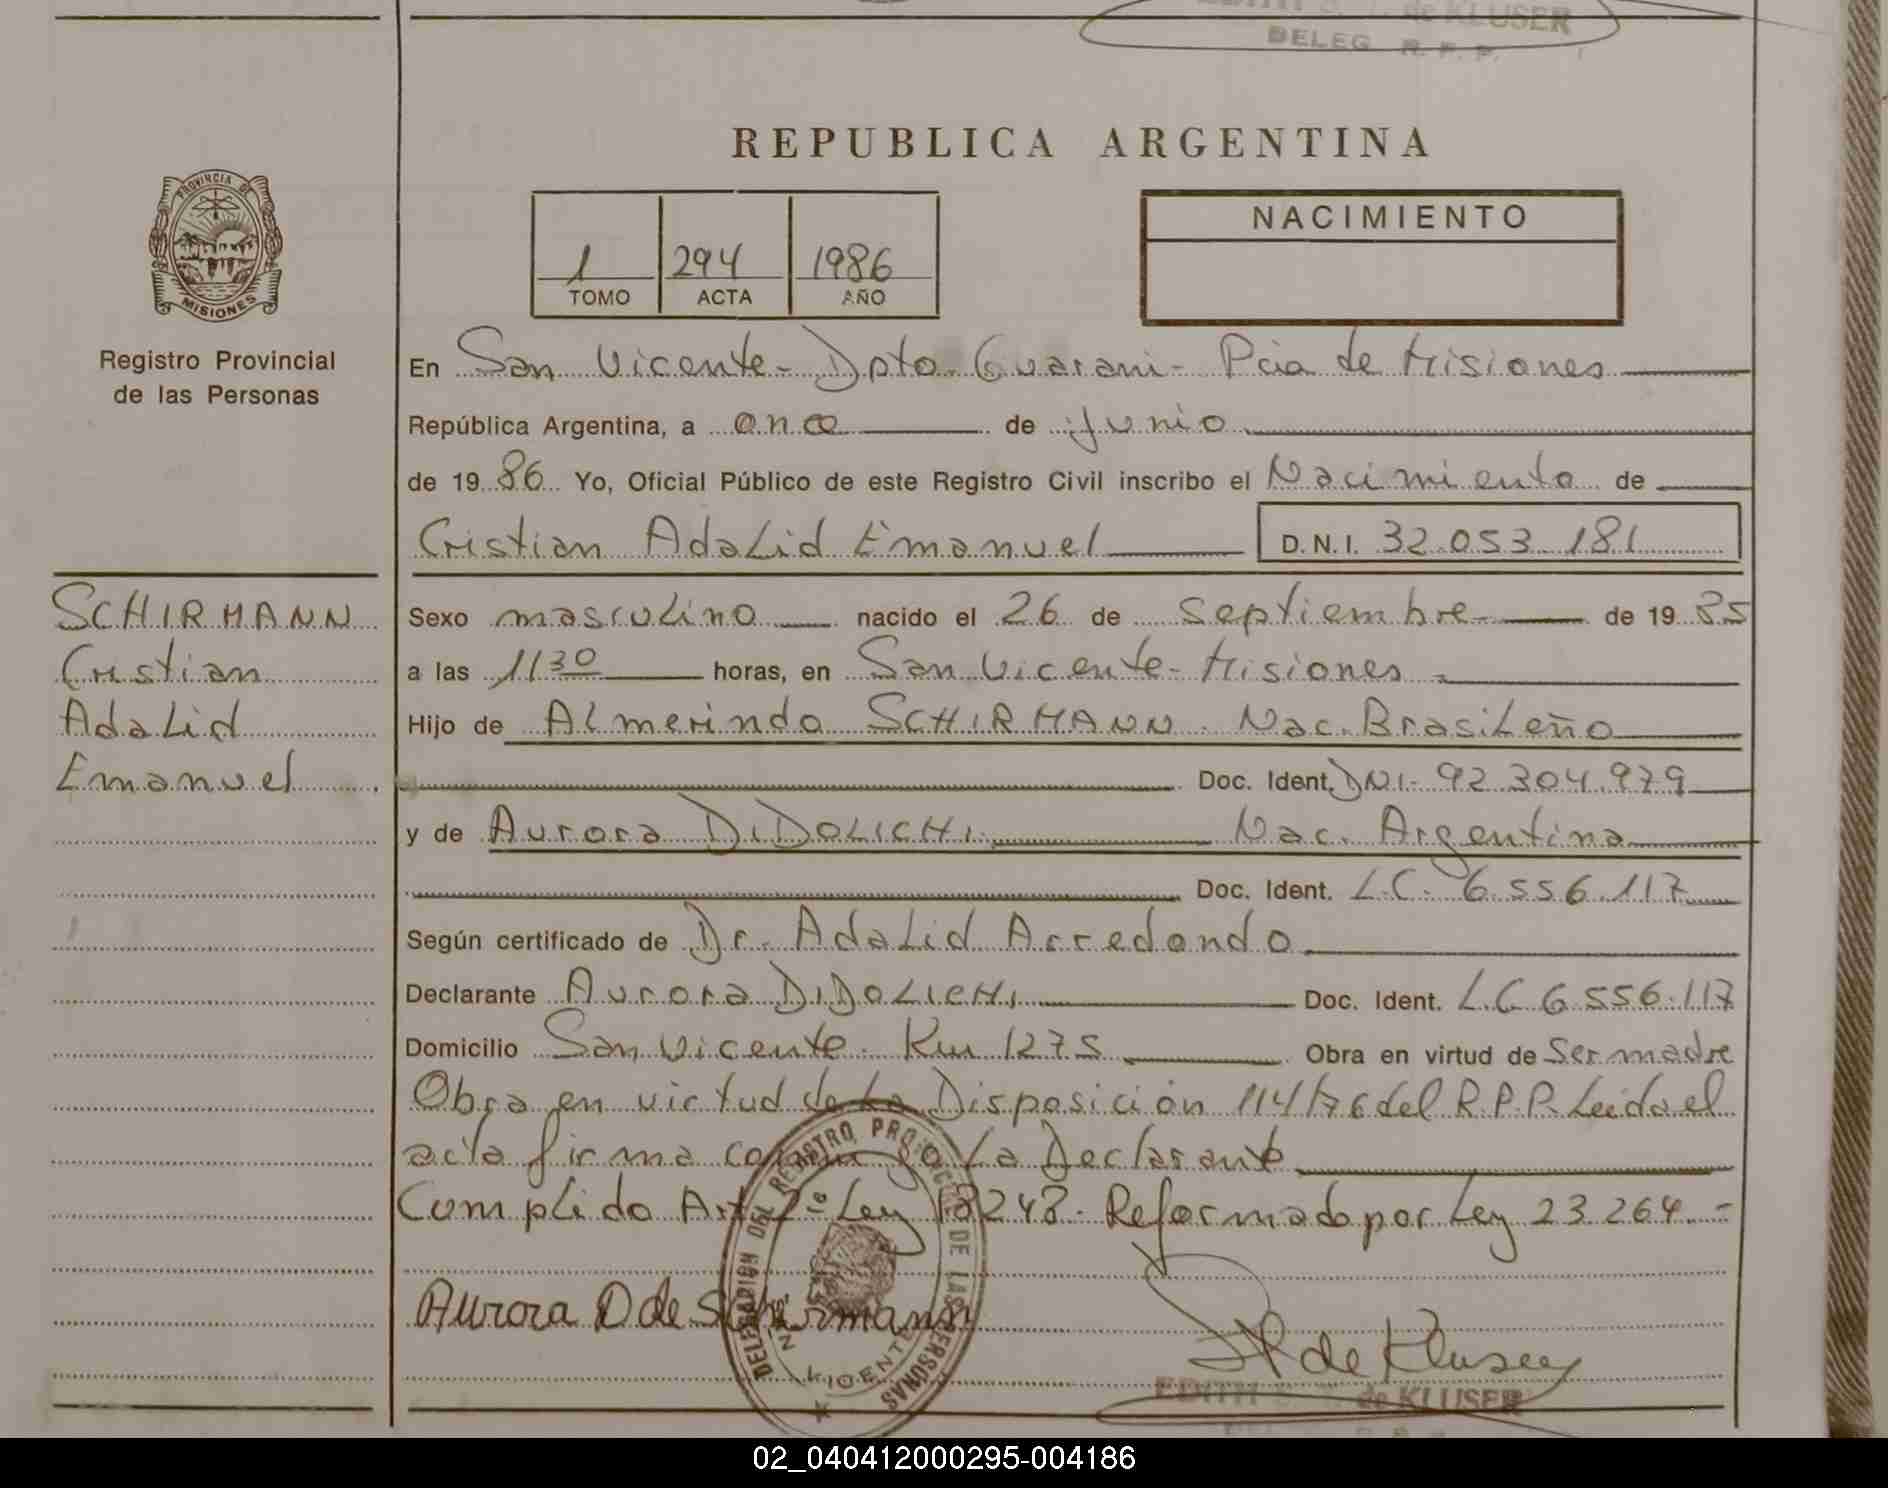 de KLUSER
DELEG. R. P. P.
REPUBLICA ARGENTINA
PROVINCIA DE
MISIONES
Registro Provincial
de las Personas
1 294 1986
TOMO ACTA AÑO
NACIMIENTO
En San Vicente - Dpto. Guarani - Pcia de Misiones
República Argentina, a once de junio
de 1986 Yo, Oficial Público de este Registro Civil inscribo el Nacimiento de
Cristian Adalid Emanuel D.N.I. 32.053.181
SCHIRMANN
Cristian
Adalid
Emanuel
Sexo masculino nacido el 26 de Septiembre de 1985
a las 11 30 horas, en San Vicente - Misiones
Hijo de Almerindo SCHIRMANN Nac. Brasileño
Doc. Ident. DNI - 92.304.979
y de Aurora DIDOLICHI Nac. Argentina
Doc. Ident. L.C. 6.556.117
Según certificado de Dr. Adalid Arredondo
Declarante Aurora DIDOLICHI Doc. Ident. L.C 6.556.117
Domicilio San Vicente Km 1275 Obra en virtud de Ser madre
Obra en virtud de La Disposición 114/76 del R.P.P. Leida el
acta firma conmigo La Declarante
Cumplido Art 2º Ley 18248. Reformado por Ley 23.264.-
DELEGACION DEL REGISTRO PROVINCIAL DE LAS PERSONAS
VICENTE
Aurora D de Schirmann
de Kluser
EDITH S. de KLUSER
02_040412000295-004186